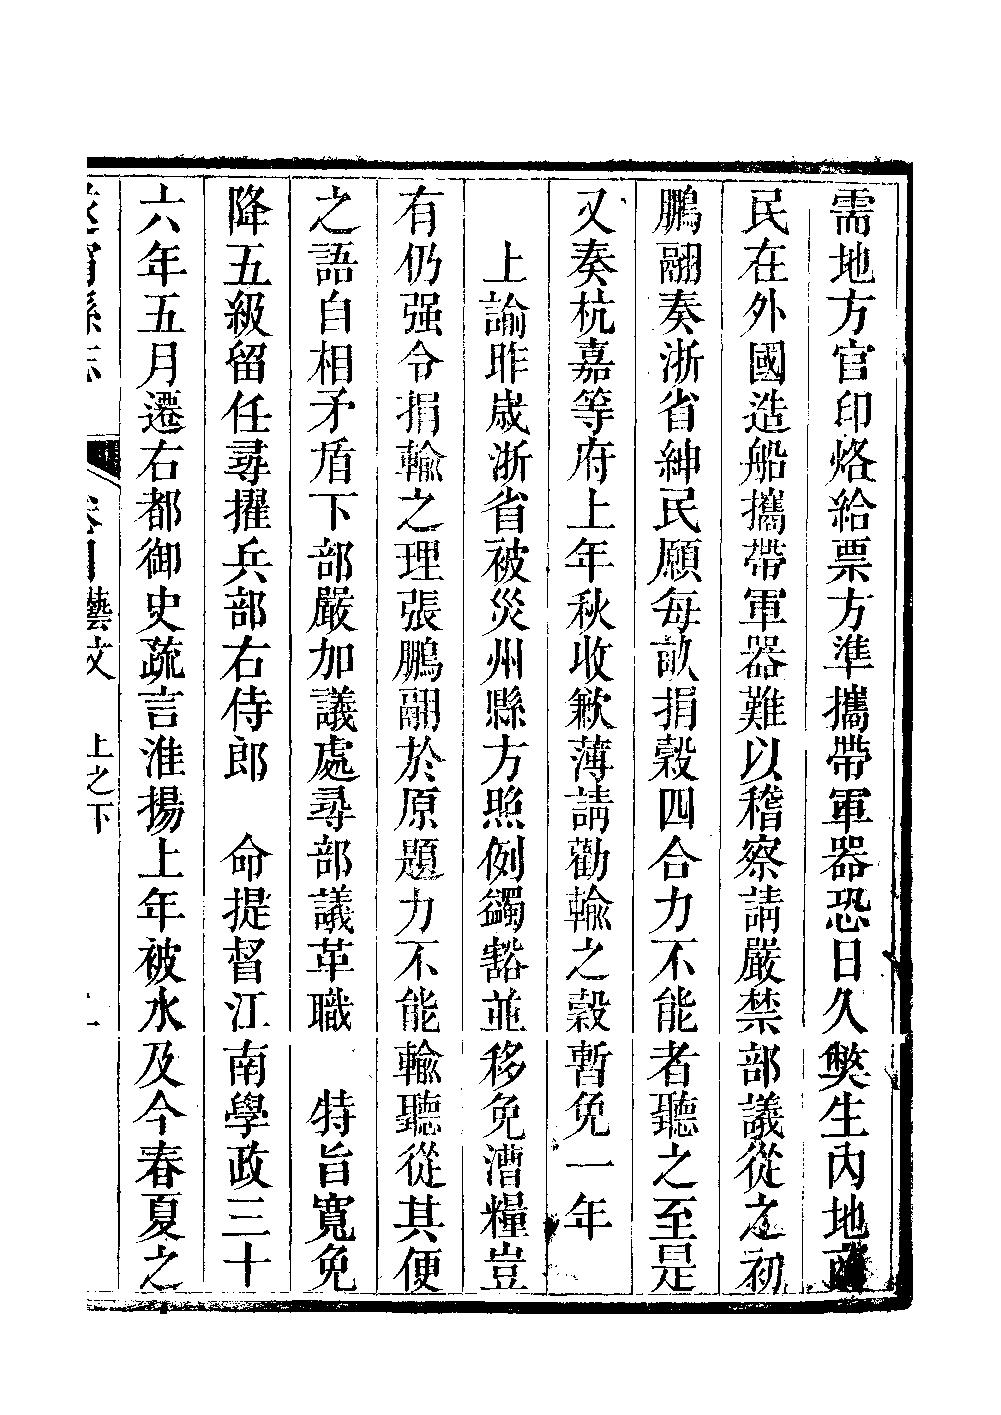 需地方官印烙給票方準攜帶軍器恐日久獘生內地商
民在外國造船攜帶軍器難以稽察請嚴禁部議從之初
鵬翮奏浙省紳民願每畝捐穀四合力不能者聽之至是
又奏杭嘉等府上年秋收歉薄請勸輸之穀暫免一年
上諭昨歲浙省被災州縣方照例蠲豁並移免漕糧豈
有仍强令捐輸之理張鵬翮於原題力不能輸聽從其便
之語自相矛盾下部嚴加議處尋部議革職　特旨寬免
降五級留任尋擢兵部右侍郎　命提督江南學政三十
六年五月遷右都御史疏言淮揚上年被水及今春夏之
遂寧縣志　卷四藝文　上之下